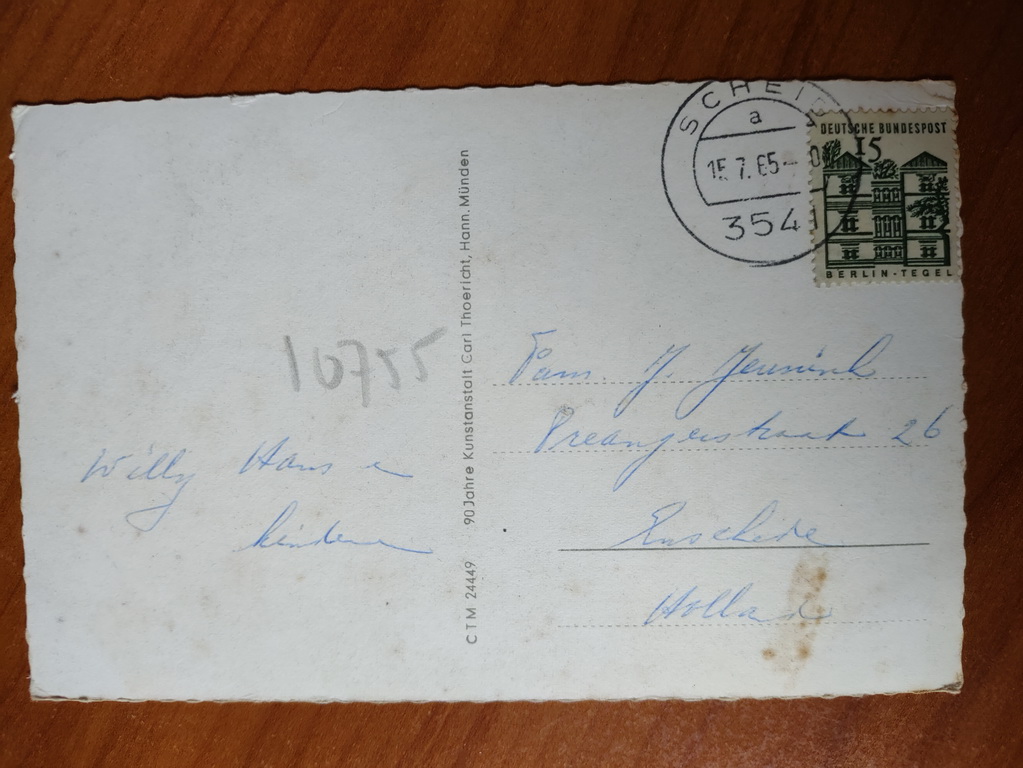 a
15.7.65-
354
DEUTSCHE BUNDESPOST
15
BERLIN-TEGEL
10755
Willy Hans en
kinderen
CTM 24449 90 Jahre Kunstanstalt Carl Thoericht, Hann. Münden
Fam. J. Jennink
Preangerstraat 26
Enschede
Holland